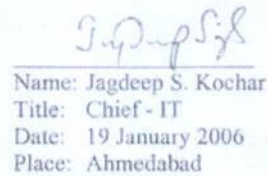 Name: Jagdeep S. Kochar
Title: Chief - IT
Date: 19 January 2006
Place: Ahmedabad